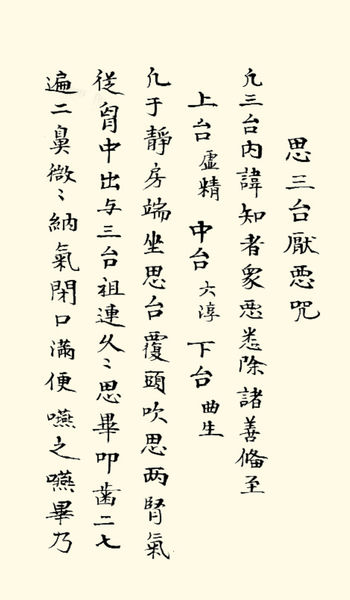 思三台厭惡咒
凡三台内諱知者衆惡悉除諸善備至
上台虛精 中台六淳 下台曲生
凡于靜房端坐思台覆頭吹思两腎氣
從胷中出与三台相連久〻思畢叩齒二七
遍二鼻微〻納氣閉口滿便嚥之嚥畢乃